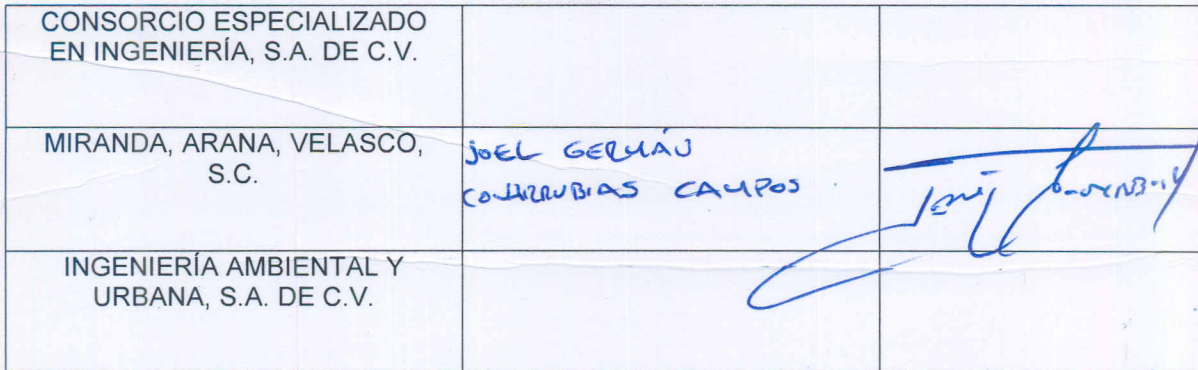 CONSORCIO ESPECIALIZADO
EN INGENIERÍA, S.A. DE C.V.
MIRANDA, ARANA, VELASCO,
S.C.
JOEL GERMÁN
COVARRUBIAS CAMPOS
INGENIERÍA AMBIENTAL Y
URBANA, S.A. DE C.V.